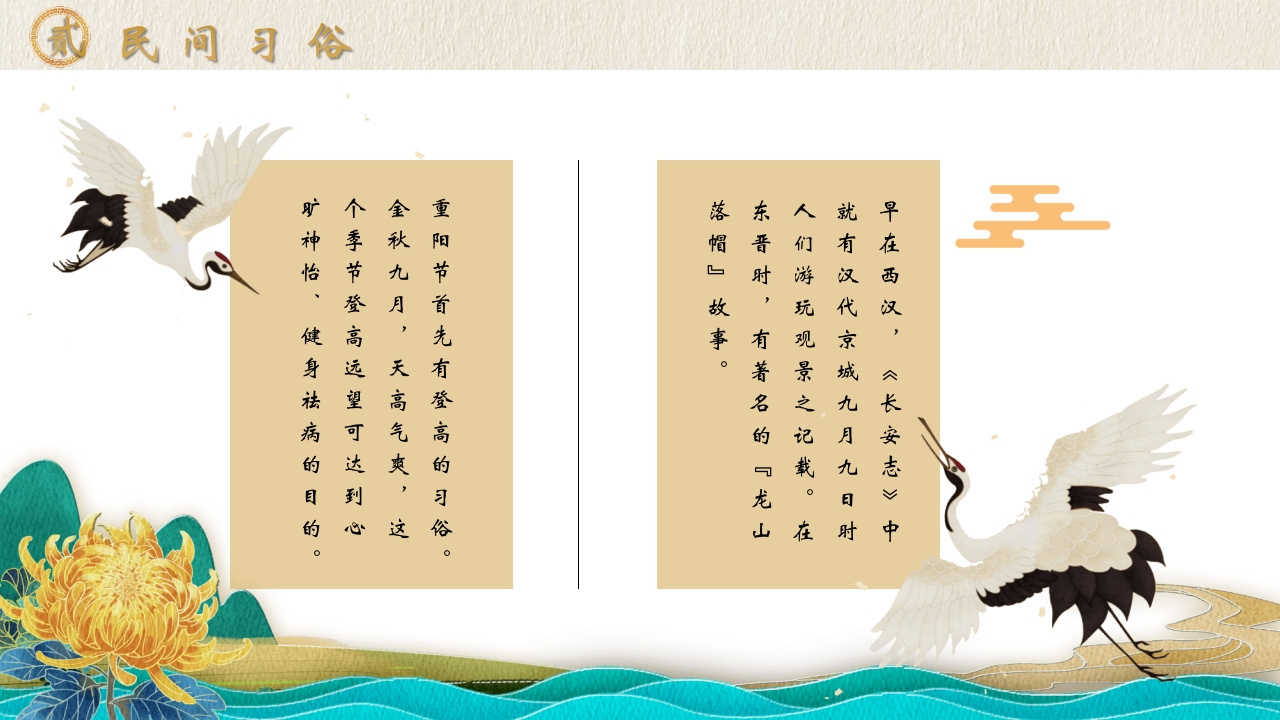 贰 民间习俗
重阳节首先有登高的习俗。
金秋九月，天高气爽，这
个季节登高远望可达到心
旷神怡、健身祛病的目的。
早在西汉，《长安志》中
就有汉代京城九月九日时
人们游玩观景之记载。在
东晋时，有著名的『龙山
落帽』故事。